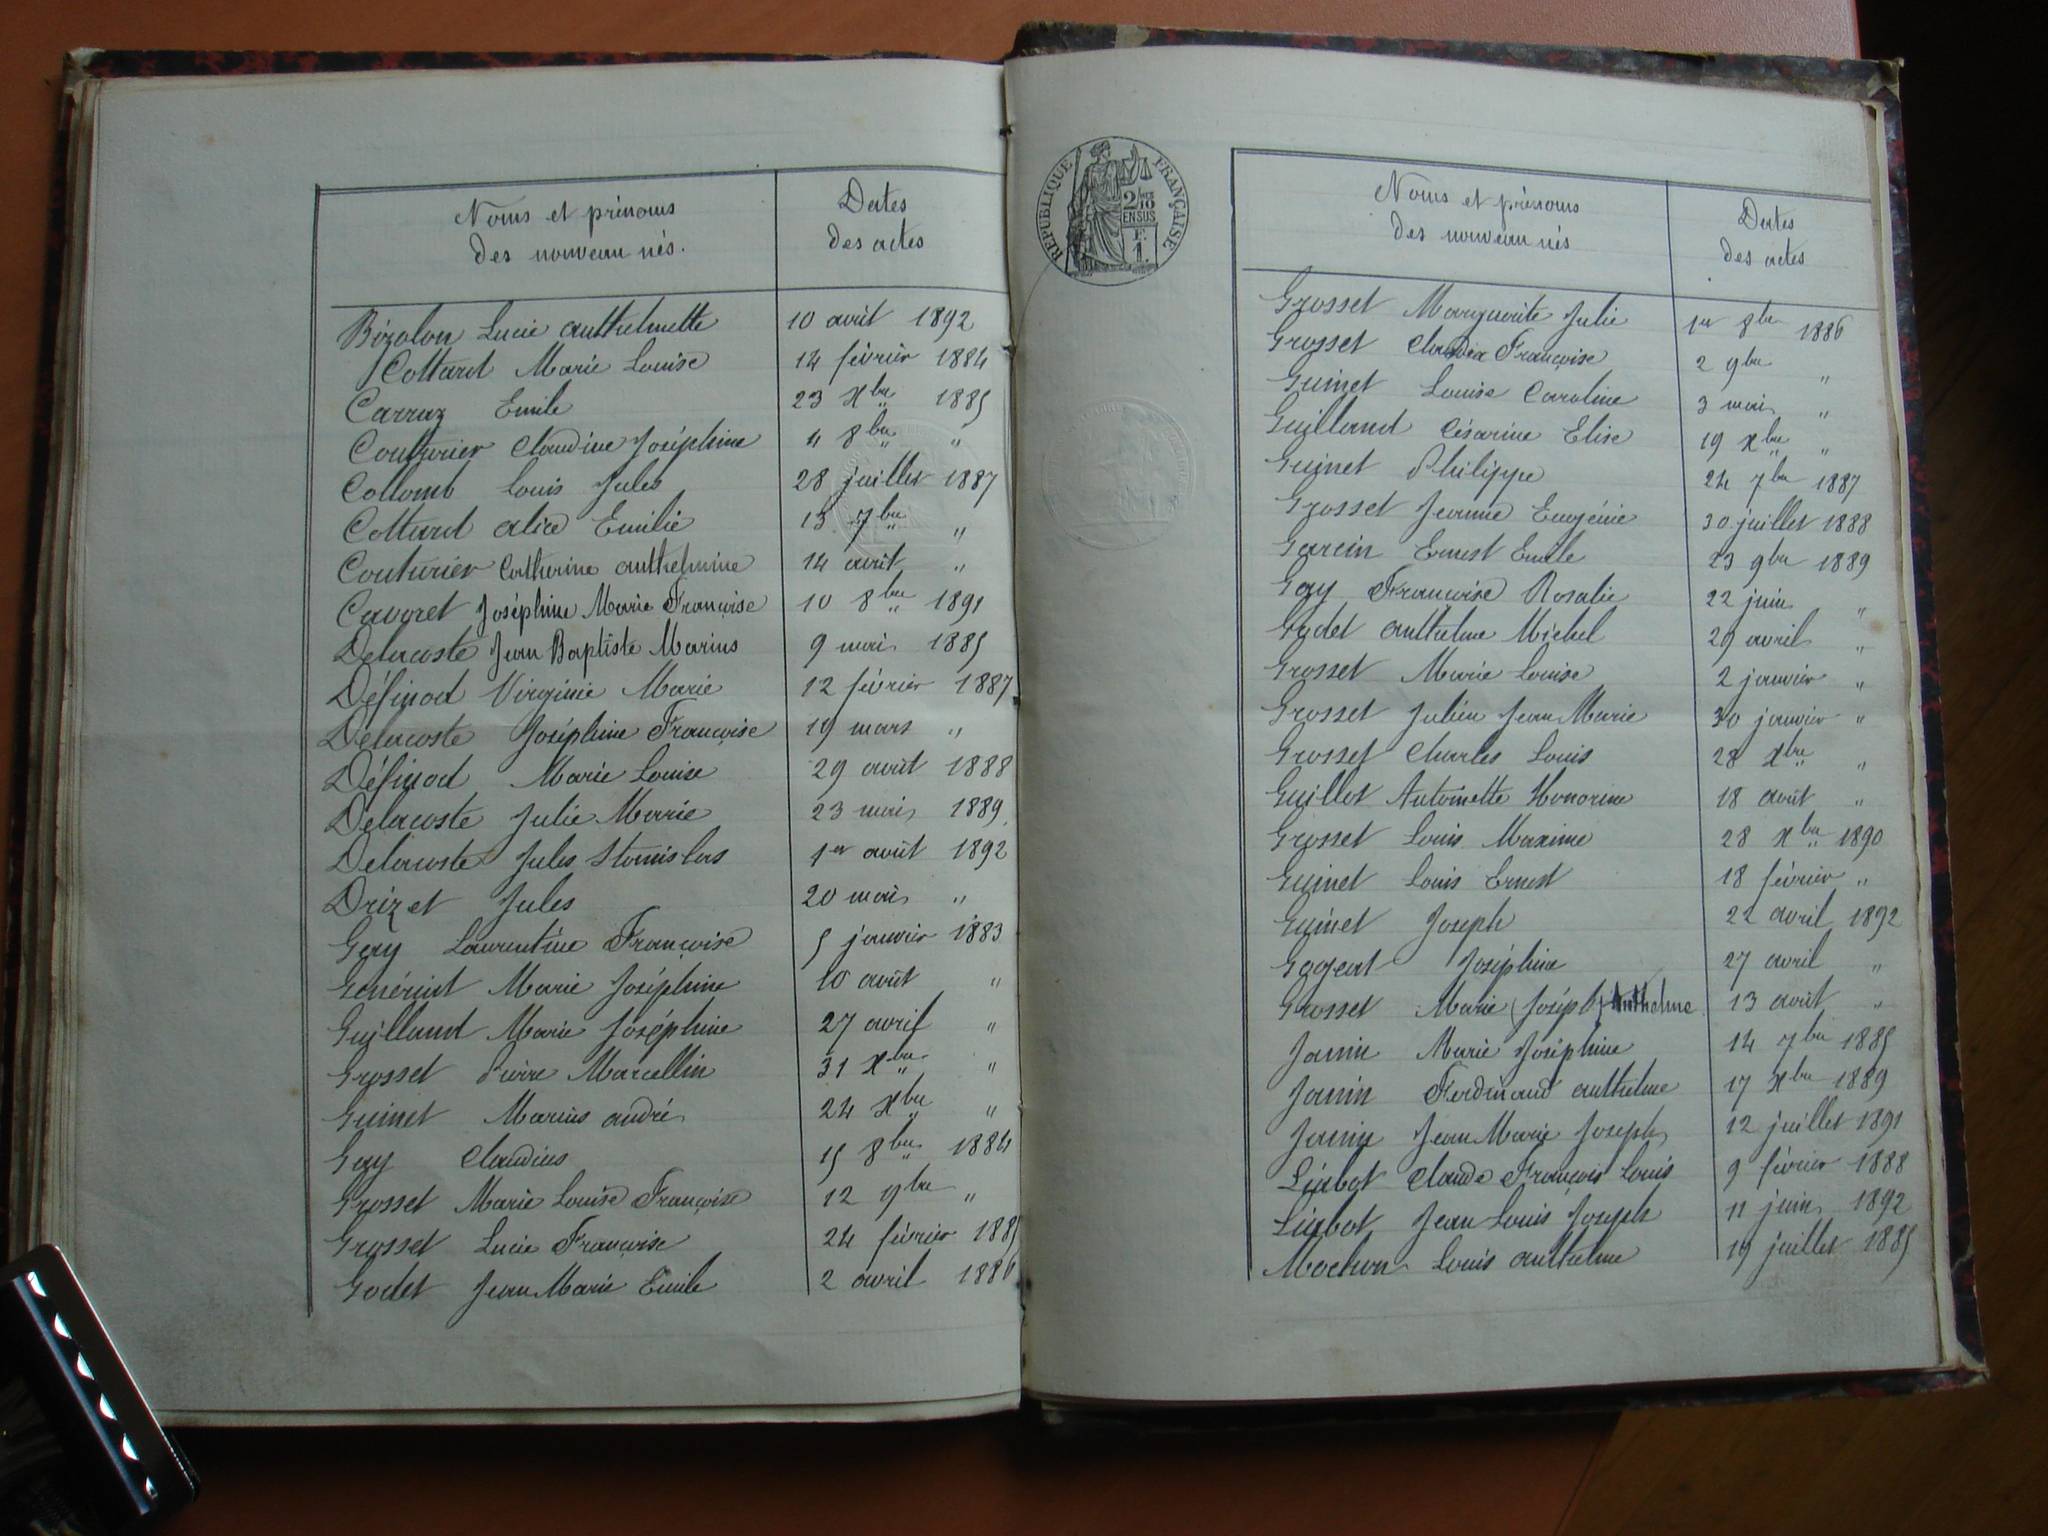 Noms et prénoms
des nouveau nés.
Dates
des actes
Bizolon Lucie Anthelmette 10 avril 1892
Cottard Marie Louise 14 février 1884
Carraz Emile 23 Xbre 1885
Couturier Claudine Joséphine 4 8bre "
Collomb Louis Jules 28 juillet 1887
Cottard Alice Emilie 13 7bre "
Couturier Catherine Anthelmine 14 avril "
Cavoret Joséphine Marie Françoise 10 8bre 1891
Delacoste Jean Baptiste Marius 9 mai 1885
Définod Virginie Marie 12 février 1887
Delacoste Joséphine Françoise 19 mars "
Définod Marie Louise 29 août 1888
Delacoste Julie Marie 23 mai 1889
Delacoste Jules Stanislas 1er août 1892
Drizet Jules 20 mai "
Gay Laurentine Françoise 5 janvier 1883
Marie Joséphine 10 août "
Guilland Marie Joséphine 27 avril "
Grosset Pierre Marcellin 31 Xbre "
Guinet Marius André 24 Xbre "
Gay Claudius 15 8bre 1884
Grosset Marie Louise Françoise 12 9bre "
Grosset Lucie Françoise 24 février 1885
Godet Jean Marie Emile 2 avril 1886
REPUBLIQUE FRANÇAISE
2/10
EN SUS
F.
1.
Noms et prénoms
des nouveau nés
Dates
des actes
Grosset Marguerite Julie 1er 8bre 1886
Grosset Claudia Françoise 2 9bre "
Guinet Louise Caroline 3 mai "
Guilland Césarine Elise 19 Xbre "
Guinet Philippe 24 7bre 1887
Grosset Jeanne Eugénie 30 juillet 1888
Garcin Ernest Emile 23 9bre 1889
Gay Françoise Rosalie 22 juin "
Godet Anthelme Michel 29 avril "
Grosset Marie Louise 2 janvier "
Grosset Julien Jean Marie 30 janvier "
Grosset Charles Louis 28 Xbre "
Guillot Antoinette Honorine 18 août "
Grosset Louis Maxime 28 Xbre 1890
Guinet Louis Ernest 18 février "
Guinet Joseph 22 avril 1892
Joséphine 27 avril "
Grosset Marie (Joseph) Anthelme 13 août "
Janin Marie Joséphine 14 7bre 1885
Janin Ferdinand Anthelme 17 Xbre 1889
Janin Jean Marie Joseph 12 juillet 1891
Liabot Claude François Louis 9 février 1888
Liabot Jean Louis Joseph 11 juin 1892
Mochon Louis Anthelme 19 juillet 1885